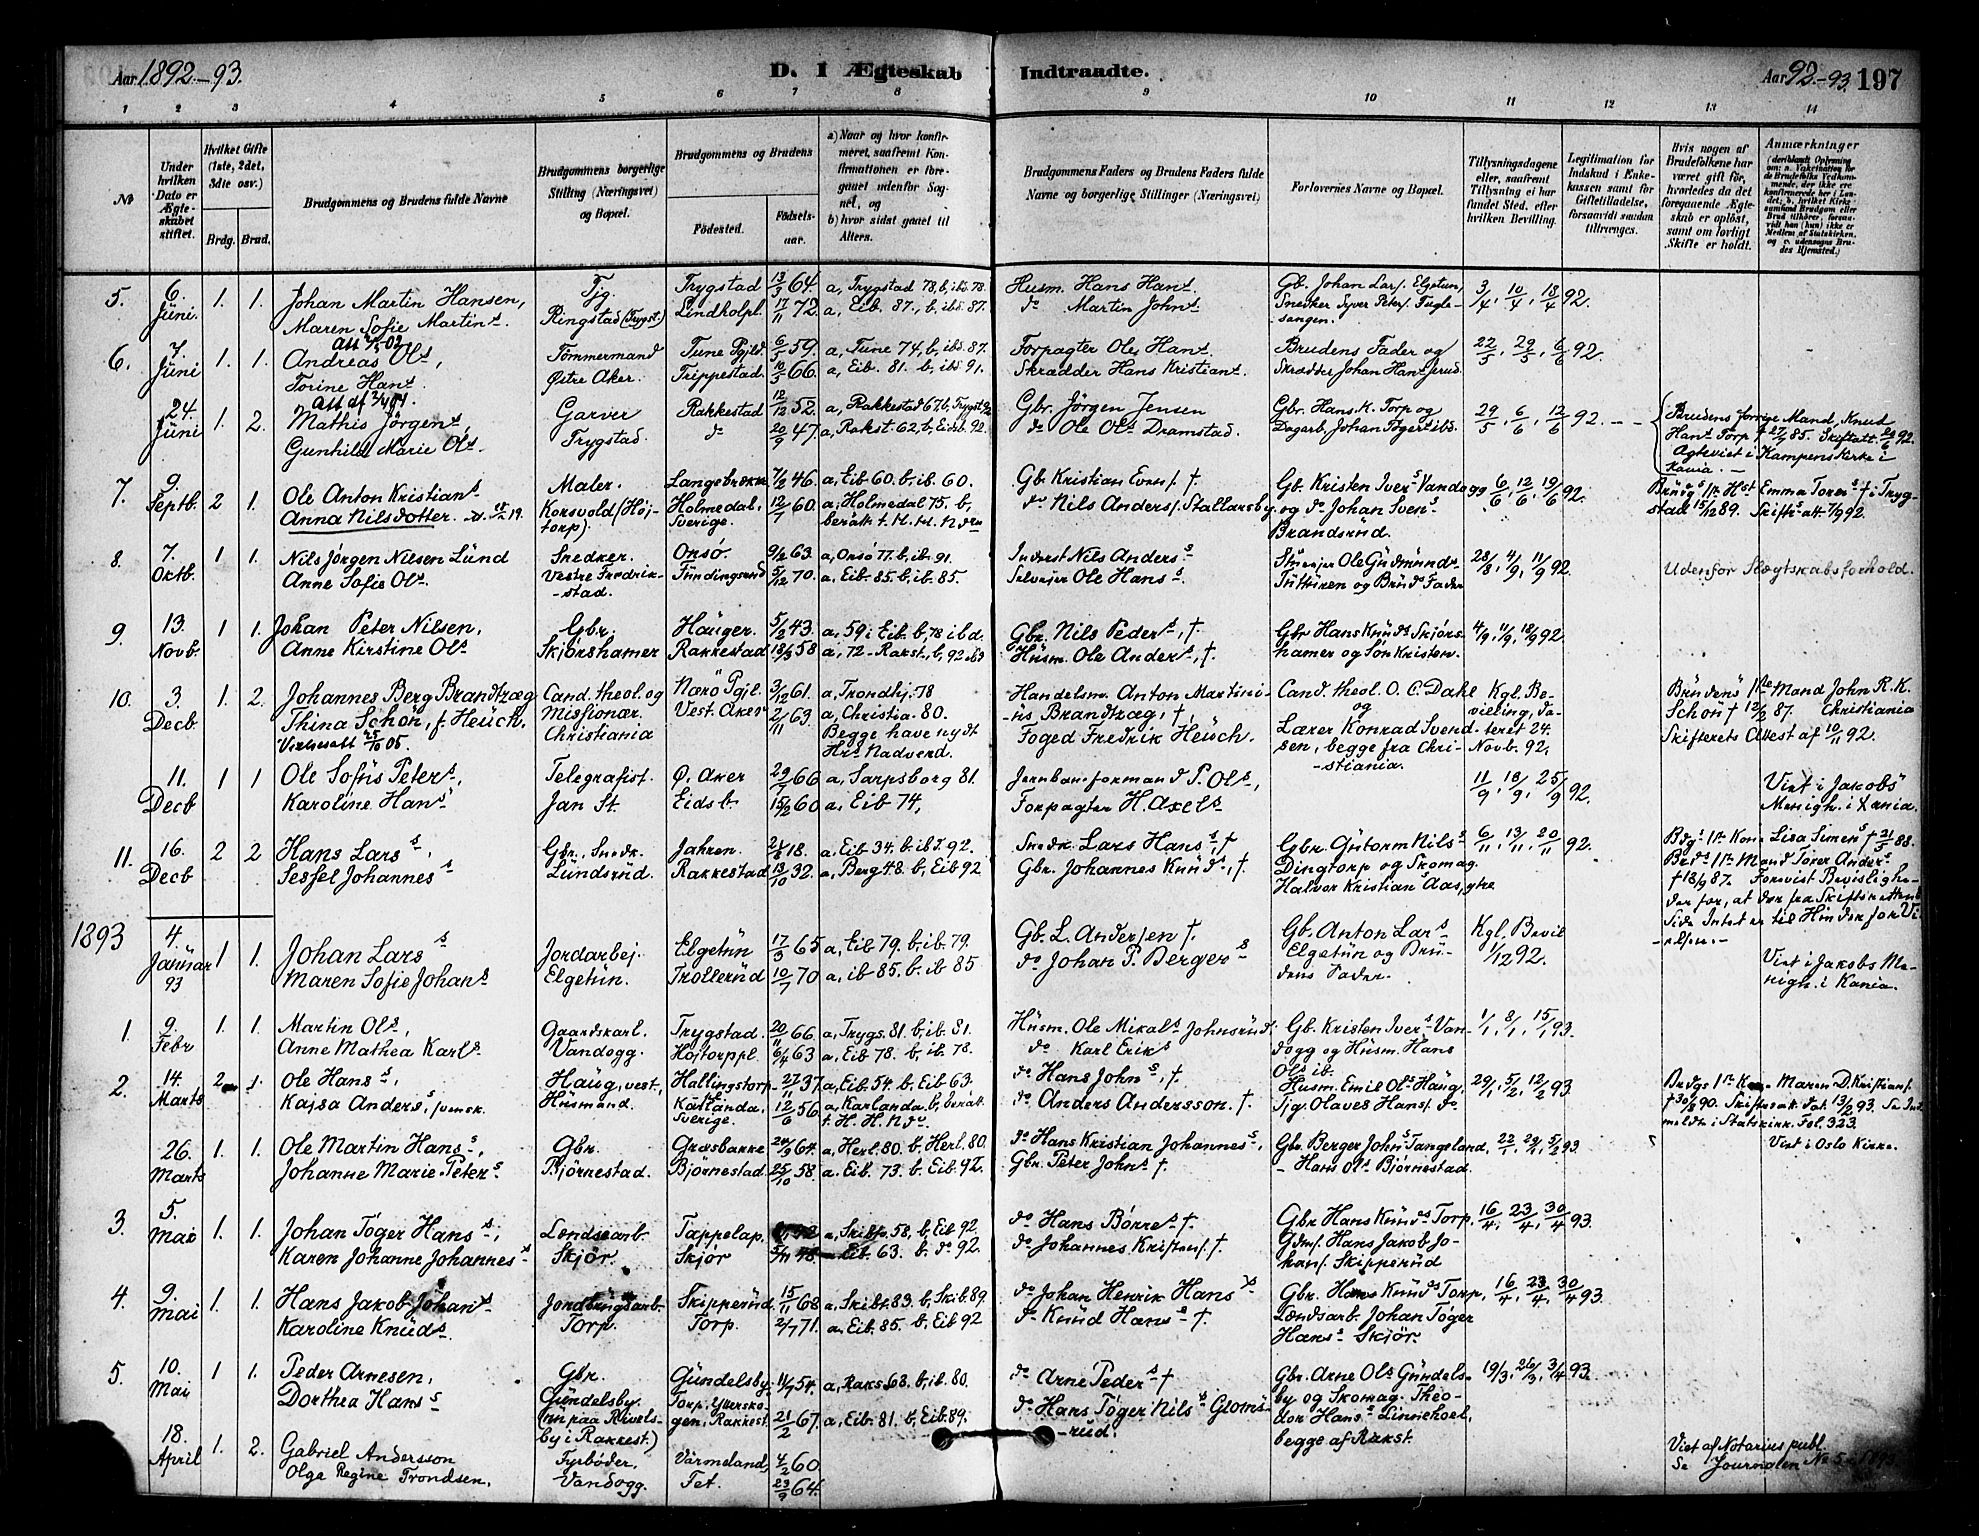 Aar 1892.-93.
D. I Ægteskab Indtraadte.
Aar 92.-93. 197
1 2 3 4 5 6 7 8 9 10 11 12 13 14
№
Under hvilken Dato er Ægteskabet stiftet.
Hvilket Gifte (1ste, 2det, 3die osv.)
Brdg. Brud.
Brudgommens og Brudens fulde Navne
Brudgommens borgerlige Stilling (Næringsvei) og Bopæl.
Brudgommens og Brudens
Fødested. Fødsels-aar.
a) Naar og hvor konfirmeret, saafremt Konfirmationen er foregaaet udenfor Sognet, og
b) hvor sidst gaaet til Alters.
Brudgommens Faders og Brudens Faders fulde Navne og borgerlige Stillinger (Næringsvei)
Forlovernes Navne og Bopæl.
Tillysningsdagene eller, saafremt Tillysning ei har fundet Sted, efter hvilken Bevilling.
Legitimation for Indskud i Enkekassen samt for Giftetilladelse, forsaavidt saadan tiltrænges.
Hvis nogen af Brudefolkene har været gift før, hvorledes da det foregaaende Ægteskab er opløst, samt om lovligt Skifte er holdt.
Anmærkninger
5. 6. Juni 1. 1. Johan Martin Hansen, Tjg. Trygstad 13/3 64. a, Trygstad 78, b, ibd. 78. Husm. Hans Hans. Gb. Johan Lars. Elgetun, 3/4, 10/4, 18/4 92.
Maren Sofie Martins. Ringstad (Trygst.) Lindholpl. 17/11 72. a, Eib. 87., b, ibd. 87. do Martin Johns Snekker Syver Peters. Fuglesangen.
6. 7. Juni 1. 1. Andreas Ols, Tømmermand Tune Pgjld. 6/5 59. a, Tune 74, b, ibd. 87. Forpagter Ole Hans. Brudens Fader og 22/5, 29/5, 6/6 92.
Torine Hans. Østre Aker. Trippestad. 10/5 66. a, Eib. 81. b, ibd. 91. Skrædder Hans Kristians. Skrædder Johan Hans
24. Juni 1. 2. Mathis Jörgens, Garver Rakkestad 12/12 52. a, Rakkestad 67. b, Trygst. 92 Gbr. Jörgen Jensen Gbr. Hans K. Torp og 29/5, 6/6, 12/6 92.
Gunhild Marie Ols. Trygstad. do 20/9 47. a, Rakst. 62, b, Eidsb. 92. do Ole Ols Dramstad. Dagarb. Johan Tøgers ibd.
Brudens forrige Mand, Knud Hans Torp † 27/7 85. Skifteatt. 92. Ægteviet i Kampens Kirke i Kania.
7. 9. Septb. 2 1. Ole Anton Kristians Maler. Langebrække 7/2 46. a, Eib 60. b. ib. 60. Gb. Kristian Evens. †. Gb. Kristen Ivers Vandogg 6/6, 12/6, 19/6 92.
Anna Nilsdotter. Korsvold (Højtorp). Holmedal, Sverige. 12/7 60. a, Holmedal 75. b, do Nils Anders. Stallarsby og do Johan Svens Brandsrud.
Brudg. 1te Hst Emma Tores † i Trygstad 15/12 89. Skifts-att. 7/9 92.
8. 7. Oktb. 1 1. Nils Jørgen Nilsen Lund Snedker. Onsø. 9/2 63. a, Onsø 77. b, ib. 91. Inderst Nils Anders 28/8, 4/9, 11/9 92. Udenfor Slægtskabsforhold.
Anne Sofie Ols. Vestre Fredrikstad. Tundingsrud 5/12 70. a, Eib. 85. b, ib. 85. Selveier Ole Hans. Tutturen og Bruds Fader
9. 13. Novb. 1 1. Johan Peter Nilsen, Gbr. Hauger. 5/2 43. a, 59 i Eib. b, 78 ibd. Gbr. Nils Peders, †. Gbr Hans Knuds Skjørshamer og Søn Kristen. 4/9, 11/9, 18/9 92.
Anne Kirstine Ols Skjørshamer Rakkestad 18/3 58 a, 72 - Rakst., b, 92 Husm. Ole Anders, †.
10. 3. Decb 1. 2. Johannes Berg Brandtzæg Cand. theol. og Missionær. Christiania Nærø Pgjl. 3/12 61. a, Trondhj. 78 Handelsm. Anton Martinius Brandtzæg, † Cand. theol. O. C. Dahl og Kgl. Bevilling, dateret 24. Novb. 92.
Thina Schön, f. Heuch. Vest. Aker 2/11 63. a, Christia. 80. Foged Fredrik Heuch. Lærer Konrad Svendsen, begge fra Christiania.
Vielsesatt 25/10 05. Begge have nydt Hrs Nadverd.
Brudens 1te Mand John R. K. Schön † 12/2 87. Christiania Skifterets Attest af 10/11 92.
11. Decb 1 1 Ole Sofus Peters, Telegrafist. Ø. Aker 29/7 66 a, Sarpsborg 81. Jernbaneformand P. Ols, 11/9, 18/9, 25/9 92.
Karoline Hans Jan St. Eidsb. 15/2 60 a, Eib 74, Forpagter H. Axels Viet i Jakobs Menigh. i Kania.
11. 16. Decb 2 2 Hans Lars, Gbr. Snedk. Jahren. 18. a, Eib 34. b, ibd. 92. Snedk. Lars Hans, † Gbr. Gutorm Nils 6/11, 13/11, 20/11 92.
Sessel Johannes Lundsrud. Rakkestad 13/10 32. a, Berg 48. b, Eib 92 Gbr. Johannes Knuds, †. Dingtorp og Skomag. Halvor Kristian Aasgtre
Bdgs 1te Kone Lisa Simens † 21/5 88. Brds 1te Mand Torer Anders † 18/9 87. Forevist Bevisligheder for, at der fra Skifterettens Side Intet er til Hinder for Vielsen.
1893 4. Januar 93 1 1. Johan Lars Jordarbej. Elgetun 17/3 65 a, Eib 79. b. ib. 79. Gb. L. Andersen †. Gb. Anton Lars Elgetun og Brudens Fader. Kgl. Bevil 1/12 92.
Maren Sofie Johans Elgetun. Trollerud 10/7 70 a, ib 85. b. ib 85 do Johan P. Bergers Viet i Jakobs Menigh. i Kania.
1 9. Febr 1. 1. Martin Ols, Gaardskarl. Trygstad. 20/11 66 a, Trygs. 81. b, ib. 81. Husm. Ole Mikals Johnsrud. Gb. Kristen Ivers Vandogg og Husm. Hans Ols ib. 1/1, 8/1, 15/1 93.
Anne Mathea Karls Vandogg. Højtorppl. 6/4 63 a, Eib 78. b, ib. 78. do Karl Eriks
2. 14. Marts 2 1. Ole Hans, Haug, vest., Hallingstorp 27/11 37 a, Eib. 54. b, Eib 63. do Hans Johns, †. Husm. Emil Ols Haug, 29/1, 5/2, 12/2 93.
Kajsa Anders, svensk. Husmand. Karlanda, Sverige. 12/6 56 a, Karlanda. b, do Anders Andersson. †. Tjg. Olaves Hans. do
Brdgs 1te Kone Maren D. Kristians. † 30/8 90. Skifteatt. dat. 13/2 93. Se Indmeldte i Statskirk. Fol. 323.
26. Marts 1. 1. Ole Martin Hans, Gbr. Græsbakke 64. a, Herl. 80. b, Herl. 80. do Hans Kristian Johannes, Gbr. Berger Johns Tangeland, 22/1, 29/1, 5/2 93 Viet i Oslo Kirke.
Johanne Marie Peters Bjørnestad. Bjørnestad. 25/10 58. a, Eib. 73. b, Eib. 92. Gbr. Peter Johns †. - Hans Ols Bjørnestad.
3. 5. Mai 1. 1. Johan Tøger Hans, Lændsearb. Tappelap. a, Skibt. 58, b, Eib 92 do Hans Børres †. Gbr. Hans Knuds Torp, 16/4, 23/4, 30/4 93.
Karen Johanne Johannes Skjør. Skjør a, Eib. 63. b, do 92. do Johannes Kristens. †. Hans Jakob Johans. Skipperud
4. 9. Mai 1. 1. Hans Jakob Johans Jordbrugsarb. Skipperud. 15/11 68 a, Skibt. 83. b, Skib. 89 do Johan Henrik Hans Gbr. Hans Knuds Torp, 16/4, 23/4, 30/4 93.
Karoline Knuds. Torp. Torp. 2/7 71. a, Eib. 85. b, Eib 92 do Knud Hans †. Lændsarb. Johan Tøger Hans Skjør.
5. 10. Mai 1 1. Peder Arnesen, Gbr. Gundelsby Gundelsby. 11/7 54. a, Rakst. 68. b, ib. 80. do Arne Peders † Gbr. Arne Ols Gundelsby og Skomag. Theodor Hans Linnehoel, begge af Rakst. 19/3, 26/3, 3/4 93.
Dorthea Hans (nu paa Rivelsby i Rakkest.) Torp, Ytterskogen, Rakkest. 21/2 67. a, Eib. 81. b, Eib. 89. do Hans Tøger Nils Glosmsrud.
18. April 1. 2. Gabriel Andersson Fyrbøder. Värmeland, 4/2 60 Viet af Notarius publ.
Olga Regine Trondsen. Vandogg. Fet. 23/9 64. Se Journalen № 5 1893.